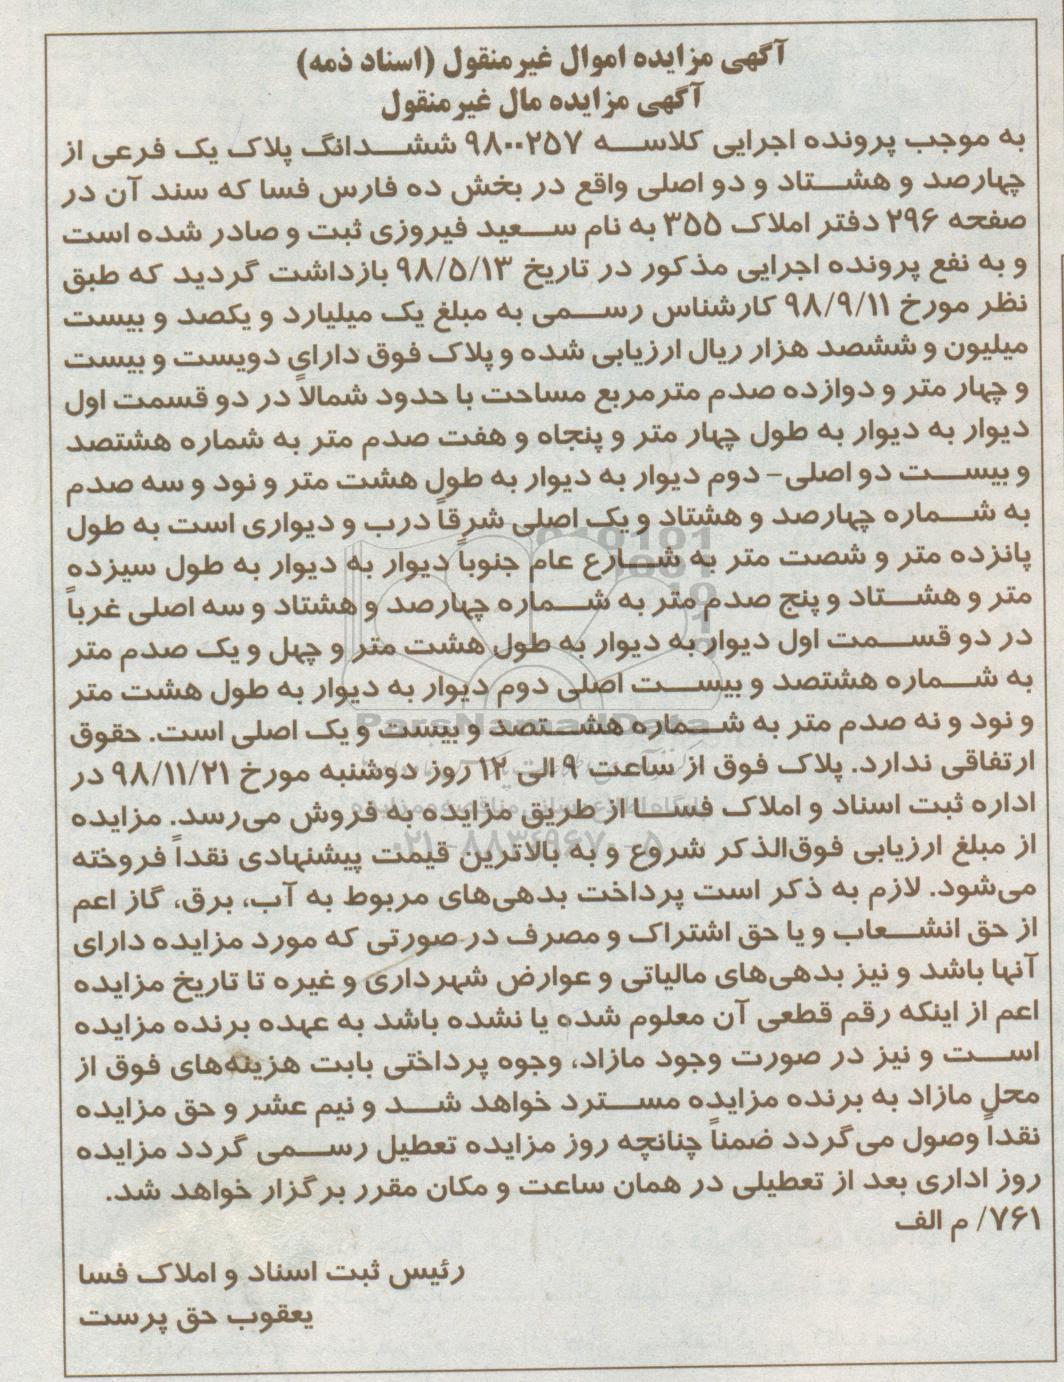 آگهی مزایده اموال غیرمنقول (اسناد ذمه)
آگهی مزایده مال غیرمنقول
به موجب پرونده اجرایی کلاسه ۹۸۰۰۲۵۷ ششدانگ پلاک یک فرعی از
چهارصد و هشتاد و دو اصلی واقع در بخش ده فارس فسا که سند آن در
صفحه ۲۹۶ دفتر املاک ۳۵۵ به نام سعید فیروزی ثبت و صادر شده است
و به نفع پرونده اجرایی مذکور در تاریخ ۹۸/۵/۱۳ بازداشت گردید که طبق
نظر مورخ ۹۸/۹/۱۱ کارشناس رسمی به مبلغ یک میلیارد و یکصد و بیست
میلیون و ششصد هزار ریال ارزیابی شده و پلاک فوق دارای دویست و بیست
و چهار متر و دوازده صدم مترمربع مساحت با حدود شمالاً در دو قسمت اول
دیوار به دیوار به طول چهار متر و پنجاه و هفت صدم متر به شماره هشتصد
و بیست دو اصلی- دوم دیوار به دیوار به طول هشت متر و نود و سه صدم
به شماره چهارصد و هشتاد و یک اصلی شرقاً درب و دیواری است به طول
پانزده متر و شصت متر به شارع عام جنوباً دیوار به دیوار به طول سیزده
متر و هشتاد و پنج صدم متر به شماره چهارصد و هشتاد و سه اصلی غرباً
در دو قسمت اول دیوار به دیوار به طول هشت متر و چهل و یک صدم متر
به شماره هشتصد و بیست اصلی دوم دیوار به دیوار به طول هشت متر
و نود و نه صدم متر به شماره هشتصد و بیست و یک اصلی است. حقوق
ارتفاقی ندارد. پلاک فوق از ساعت ۹ الی ۱۲ روز دوشنبه مورخ ۹۸/۱۱/۲۱ در
اداره ثبت اسناد و املاک فسا از طریق مزایده به فروش می‌رسد. مزایده
از مبلغ ارزیابی فوق‌الذکر شروع و به بالاترین قیمت پیشنهادی نقداً فروخته
می‌شود. لازم به ذکر است پرداخت بدهی‌های مربوط به آب، برق، گاز اعم
از حق انشعاب و یا حق اشتراک و مصرف در صورتی که مورد مزایده دارای
آنها باشد و نیز بدهی‌های مالیاتی و عوارض شهرداری و غیره تا تاریخ مزایده
اعم از اینکه رقم قطعی آن معلوم شده یا نشده باشد به عهده برنده مزایده
است و نیز در صورت وجود مازاد، وجوه پرداختی بابت هزینه‌های فوق از
محل مازاد به برنده مزایده مسترد خواهد شد و نیم عشر و حق مزایده
نقداً وصول می‌گردد ضمناً چنانچه روز مزایده تعطیل رسمی گردد مزایده
روز اداری بعد از تعطیلی در همان ساعت و مکان مقرر برگزار خواهد شد.
۷۶۱/ م الف
رئیس ثبت اسناد و املاک فسا
یعقوب حق پرست
ParsNamadData
۰۲۱-۸۸۳۴۹۶۷۰-۵